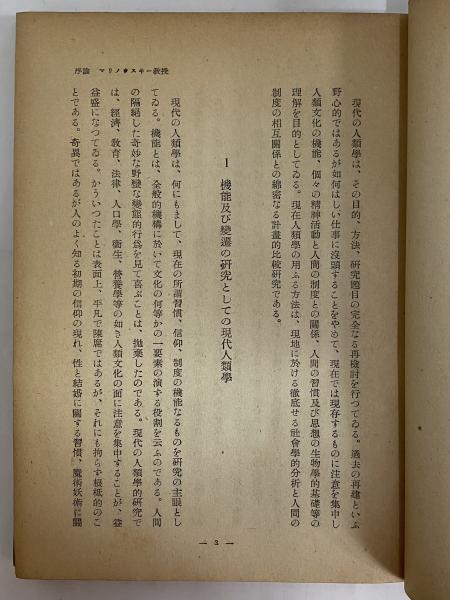 序論 マリノウスキー敎授
現代の人類學は、その目的、方法、硏究題目の完全なる再檢討を行つてゐる。過去の再建といふ
野心的ではあるが如何はしい仕事に沒頭することをやめて、現在では現存するものに注意を集中し
人類文化の機能、個々の精神活動と人間の制度との關係、人間の習慣及び思想の生物學的基礎等の
理解を目的としてゐる。現在人類學の用ふる方法は、現地に於ける徹底せる社會學的分析と人間の
制度の相互關係との綿密なる計畫的比較硏究である。
1 機能及び變遷の硏究としての現代人類學
現代の人類學は、何にもまして、現在の所謂習慣、信仰、制度の機能なるものを硏究の主眼とし
てゐる。機能とは、全般的機構に於いて文化の何等かの一要素の演する役割を云ふのである。人間
の隔絕した奇妙な野蠻な變態的行爲を見て喜ぶことは、拋棄したのである。現代の人類學的硏究で
は、經濟、敎育、法律、人口學、衞生、營養學等の如き人類文化の面に注意を集中することが、益
益盛になつてゐる。かういつたことは表面上、平凡で陳腐ではあるが、それにも拘らず根柢的のこ
とである。奇異ではあるが人のよく知る初期の信仰の現れ、性と結婚に關する習慣、魔術妖術に關
— 3 —